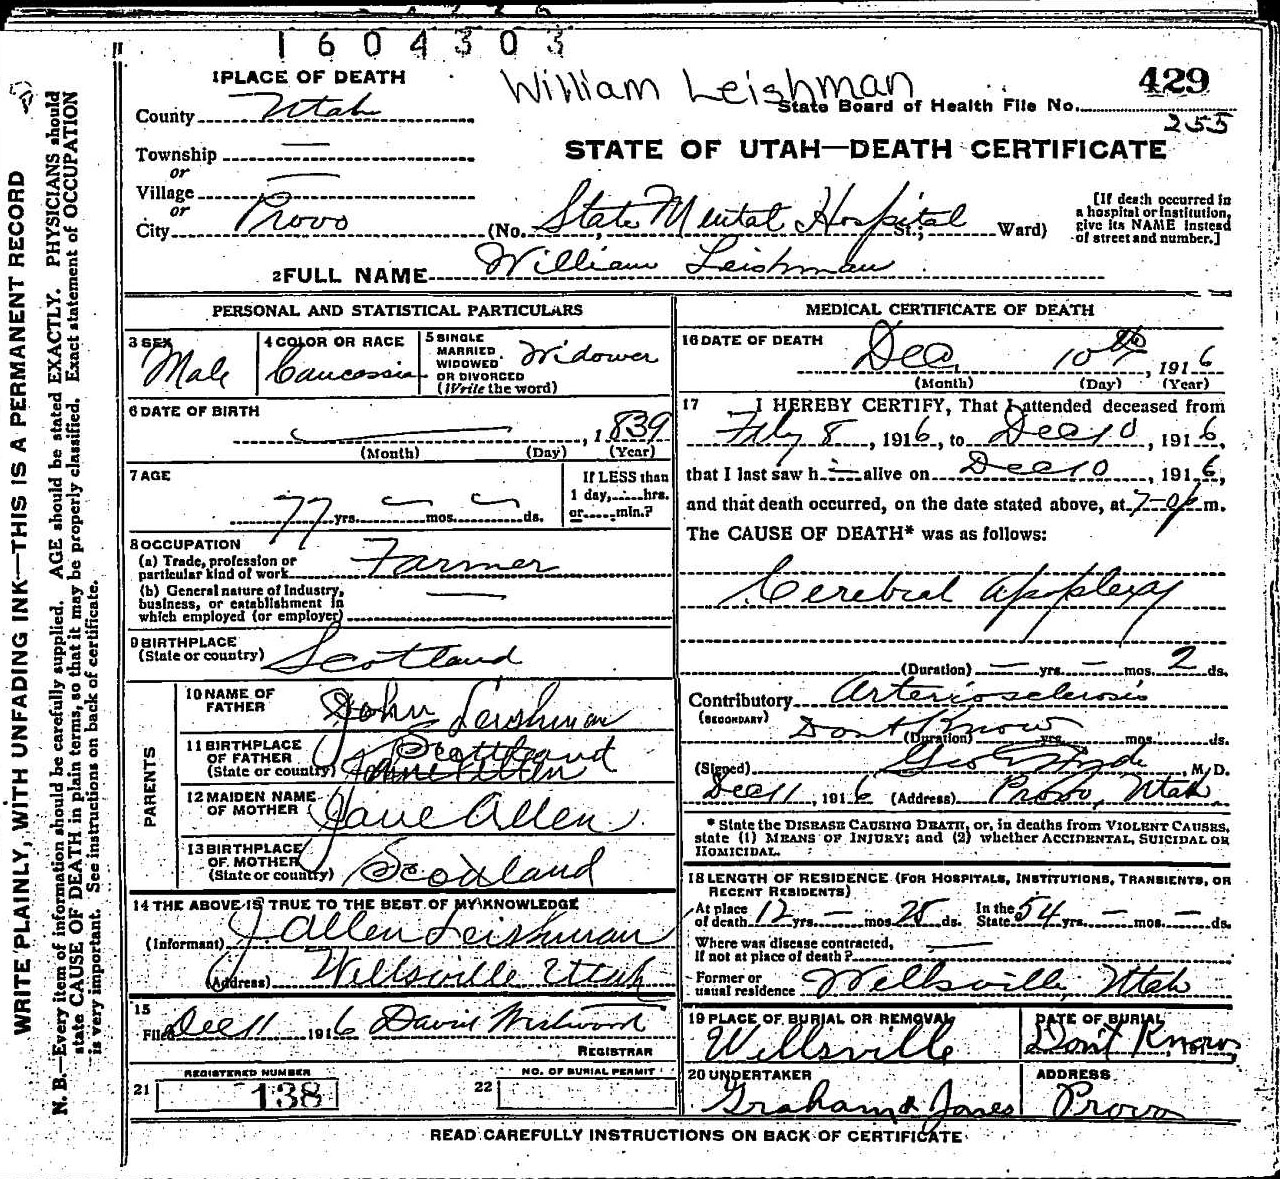 1604303
1 PLACE OF DEATH
William Leishman
429
State Board of Health File No.
255
County Utah
STATE OF UTAH—DEATH CERTIFICATE
Township —
or
Village —
or
City Provo (No. State Mental Hospital St.; Ward)
[If death occurred in a hospital or institution, give its NAME instead of street and number.]
2 FULL NAME William Leishman
PERSONAL AND STATISTICAL PARTICULARS
3 SEX Male
4 COLOR OR RACE Caucassian
5 SINGLE MARRIED WIDOWED OR DIVORCED (Write the word) Widower
6 DATE OF BIRTH
— , 1839
(Month) (Day) (Year)
7 AGE
77 yrs. — mos. — ds.
If LESS than 1 day, hrs. or min.?
8 OCCUPATION
(a) Trade, profession or particular kind of work Farmer
(b) General nature of Industry, business, or establishment in which employed (or employer) —
9 BIRTHPLACE
(State or country) Scotland
PARENTS
10 NAME OF FATHER John Leishman
11 BIRTHPLACE OF FATHER (State or country) Scotland
12 MAIDEN NAME OF MOTHER Jane Allen
13 BIRTHPLACE OF MOTHER (State or country) Scotland
14 THE ABOVE IS TRUE TO THE BEST OF MY KNOWLEDGE
(Informant) J Allen Leishman
(Address) Wellsville Utah
15
Filed Dec 11 1916 David Westwood
REGISTRAR
REGISTERED NUMBER
21 138
NO. OF BURIAL PERMIT
22
MEDICAL CERTIFICATE OF DEATH
16 DATE OF DEATH
Dec 10th, 1916
(Month) (Day) (Year)
17 I HEREBY CERTIFY, That I attended deceased from
8, 1916, to Dec 10, 1916,
that I last saw h — alive on Dec 10, 1916,
and that death occurred, on the date stated above, at m.
The CAUSE OF DEATH* was as follows:
Cerebral Apoplexy
(Duration) — yrs. — mos. 2 ds.
Contributory Arteriosclerosis
(SECONDARY) Dont Know
(Duration) yrs. mos. ds.
(Signed) Geo Hyde, M. D.
Dec 11, 1916 (Address) Provo, Utah
* State the DISEASE CAUSING DEATH, or, in deaths from VIOLENT CAUSES, state (1) MEANS OF INJURY; and (2) whether ACCIDENTAL, SUICIDAL OR HOMICIDAL.
18 LENGTH OF RESIDENCE (FOR HOSPITALS, INSTITUTIONS, TRANSIENTS, OR RECENT RESIDENTS)
At place of death 12 yrs. — mos. 25 ds. In the State 54 yrs. — mos. — ds.
Where was disease contracted, If not at place of death? —
Former or usual residence Wellsville, Utah
19 PLACE OF BURIAL OR REMOVAL
Wellsville
DATE OF BURIAL
Don't Know, 191
20 UNDERTAKER
Graham & Jones
ADDRESS
Provo
READ CAREFULLY INSTRUCTIONS ON BACK OF CERTIFICATE
WRITE PLAINLY, WITH UNFADING INK—THIS IS A PERMANENT RECORD
N. B.—Every item of information should be carefully supplied. AGE should be stated EXACTLY. PHYSICIANS should
state CAUSE OF DEATH in plain terms, so that it may be properly classified. Exact statement of OCCUPATION
is very important. See instructions on back of certificate.